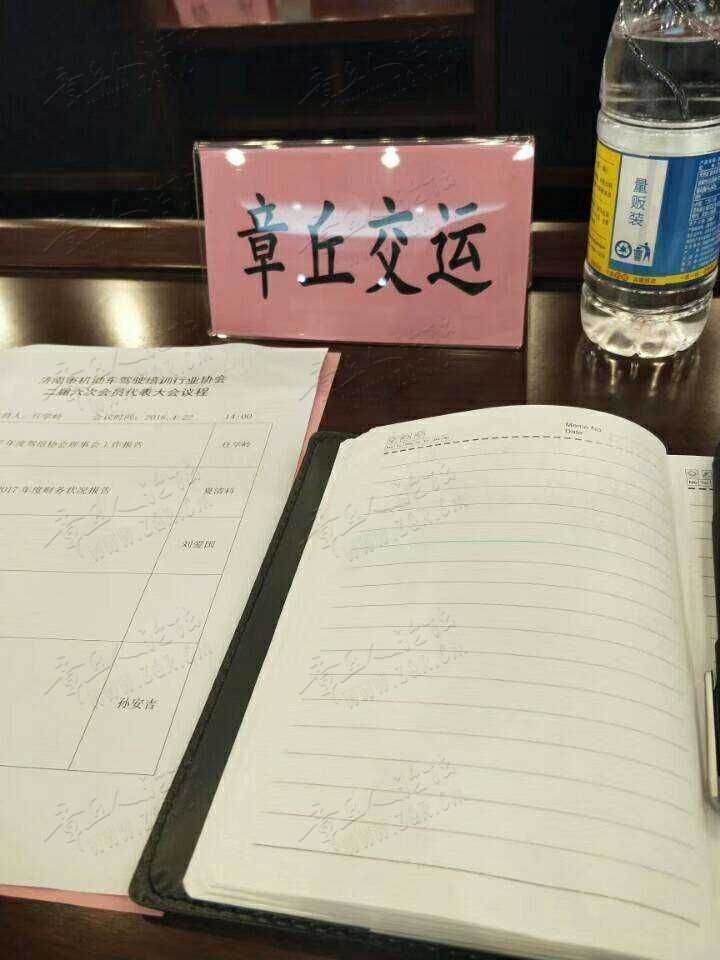 章丘交运
量贩装
济南市机动车驾驶培训行业协会
二届六次会员代表大会议程
持人：任学岭 会议时间：2018．4．22 14：00
年度驾培协会理事会工作报告 任学岭
2017年度财务状况报告 夏洁科
刘爱国
孙安吉
Memo No.
Date
章丘人论坛
WWW.ZQR.CN